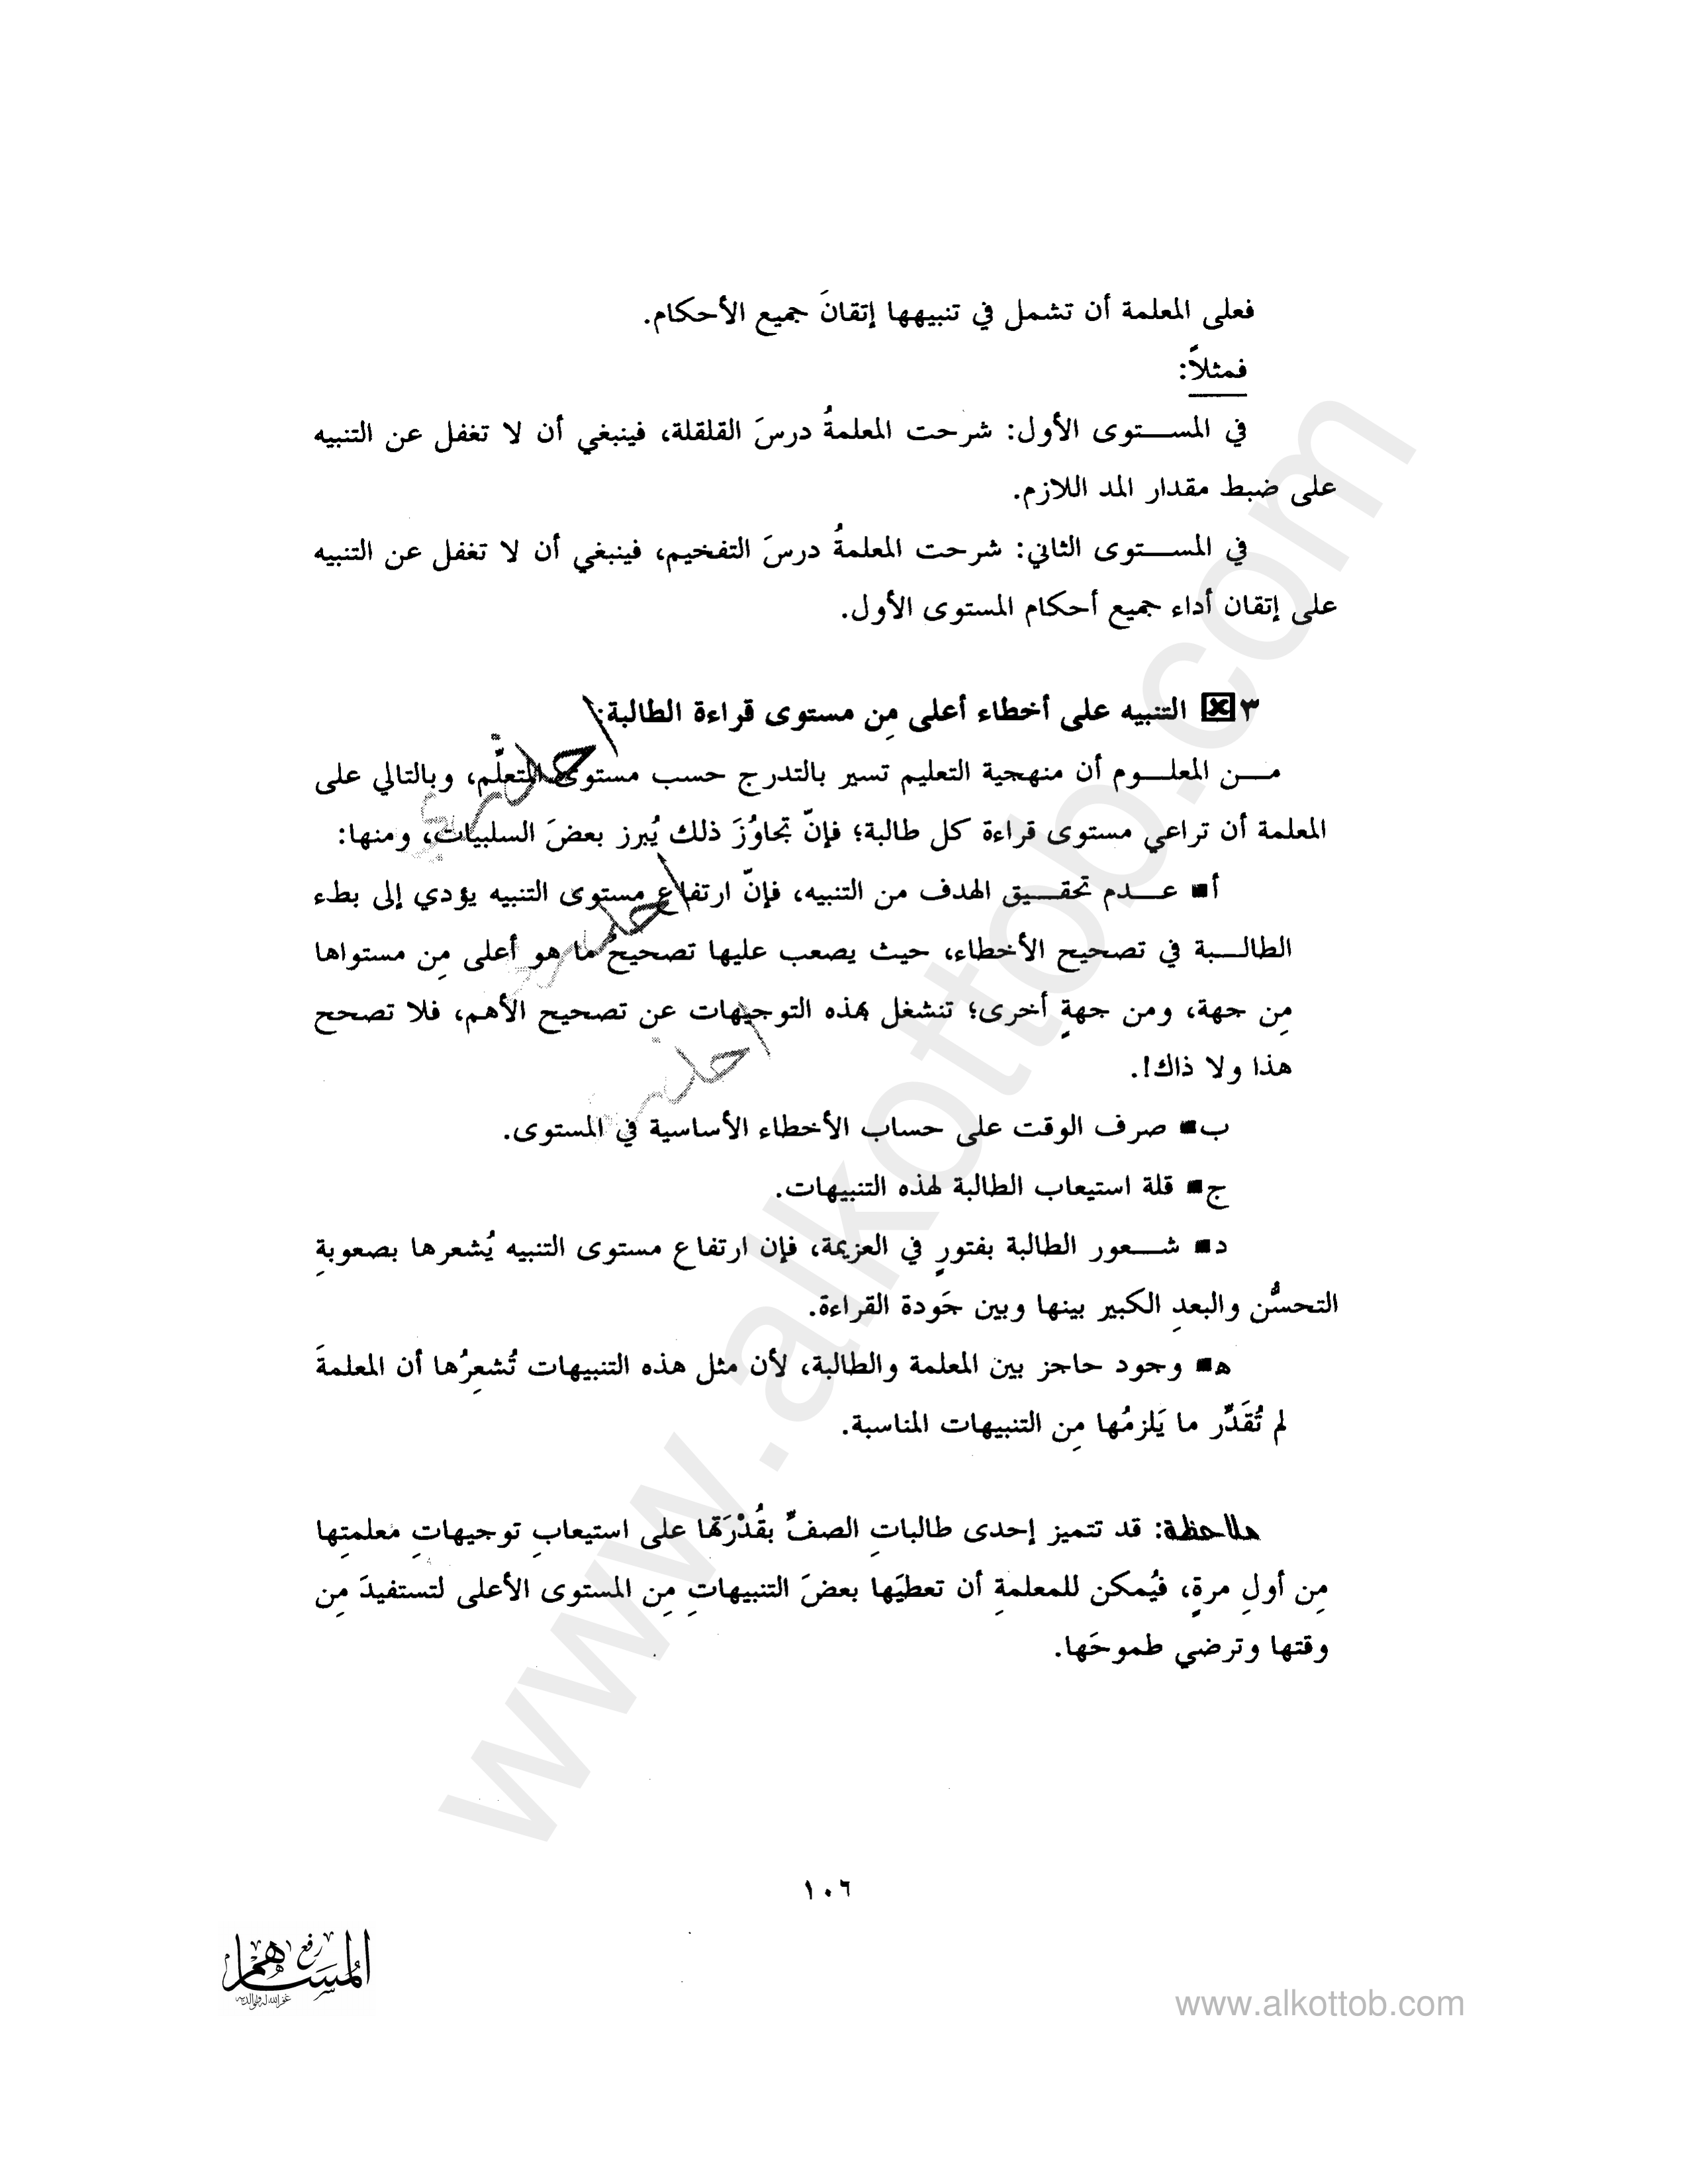 فعلى المعلمة أن تشمل في تنبيهها إتقانَ جميع الأحكام.
فمثلاً:
في المستوى الأول: شرحت المعلمةُ درسَ القلقلة، فينبغي أن لا تغفل عن التنبيه
على ضبط مقدار المد اللازم.
في المستوى الثاني: شرحت المعلمةُ درسَ التفخيم، فينبغي أن لا تغفل عن التنبيه
على إتقان أداء جميع أحكام المستوى الأول.
٣ التنبيه على أخطاء أعلى مِن مستوى قراءة الطالبة:
من المعلوم أن منهجية التعليم تسير بالتدرج حسب مستوى المتعلّم، وبالتالي على
المعلمة أن تراعي مستوى قراءة كل طالبة؛ فإنّ تجاوُزَ ذلك يُبرز بعضَ السلبيات، ومنها:
أ■ عدم تحقيق الهدف من التنبيه، فإنّ ارتفاع مستوى التنبيه يؤدي إلى بطء
الطالبة في تصحيح الأخطاء، حيث يصعب عليها تصحيحُ ما هو أعلى مِن مستواها
مِن جهة، ومن جهةٍ أخرى؛ تنشغل بهذه التوجيهات عن تصحيح الأهم، فلا تصحح
هذا ولا ذاك!.
ب■ صرف الوقت على حساب الأخطاء الأساسية في المستوى.
ج■ قلة استيعاب الطالبة لهذه التنبيهات.
د■ شعور الطالبة بفتورٍ في العزيمة، فإن ارتفاع مستوى التنبيه يُشعرها بصعوبةِ
التحسُّن والبعدِ الكبير بينها وبين جَودة القراءة.
هـ■ وجود حاجز بين المعلمة والطالبة، لأن مثل هذه التنبيهات تُشعِرُها أن المعلمةَ
لم تُقَدِّر ما يَلزمُها مِن التنبيهات المناسبة.
ملاحظة: قد تتميز إحدى طالباتِ الصفِّ بقُدْرَتها على استيعابِ توجيهاتِ معلمتِها
مِن أولِ مرةٍ، فيُمكن للمعلمةِ أن تعطيَها بعضَ التنبيهاتِ مِن المستوى الأعلى لتستفيدَ مِن
وقتها وترضي طموحَها.
١٠٦
www.alkottob.com
www.alkottob.com